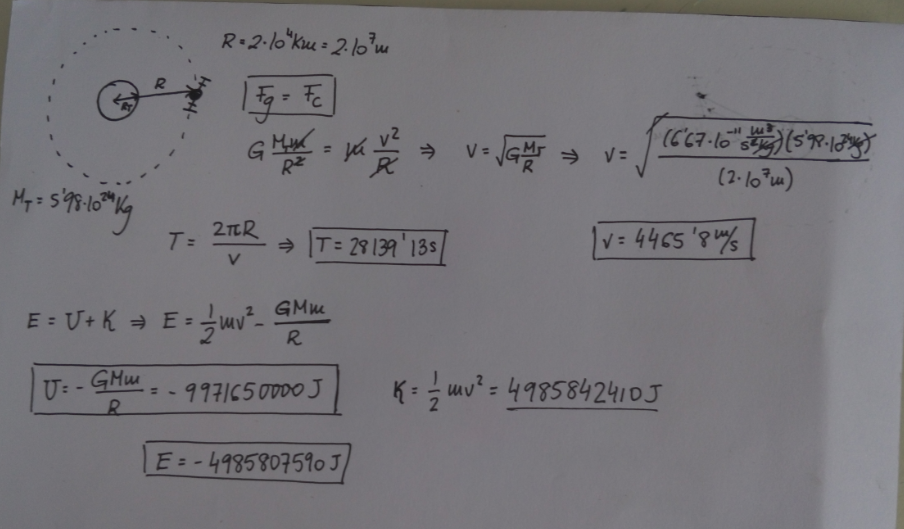 R = 2·10⁴Km = 2·10⁷m
R
R_T
Fg = Fc
G M_T m / R² = m v² / R ⇒ v = √(G M_T / R) ⇒ v = √((6'67·10⁻¹¹ m³/s²Kg)(5'98·10²⁴Kg) / (2·10⁷m))
M_T = 5'98·10²⁴Kg
T = 2πR / v ⇒ T = 28139'13s
v = 4465'8 m/s
E = U + K ⇒ E = 1/2 mv² - GMm / R
U = - GMm / R = - 9971650000 J
K = 1/2 mv² = 4985842410 J
E = - 4985807590 J